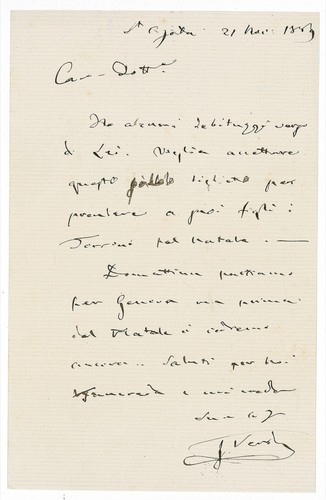 St Agata 21 Nov. 18
Caro Dottr
Ho alcuni debituzzi verso
di Lei. Voglia accettare
questo piccolo biglietto per
prendere a suoi figli i
Torroni pel Natale. —
Domattina partiamo
per Genova ma prima
del Natale ci vedremo
ancora. Saluti per noi
e mi creda
suo aff
G. Verdi